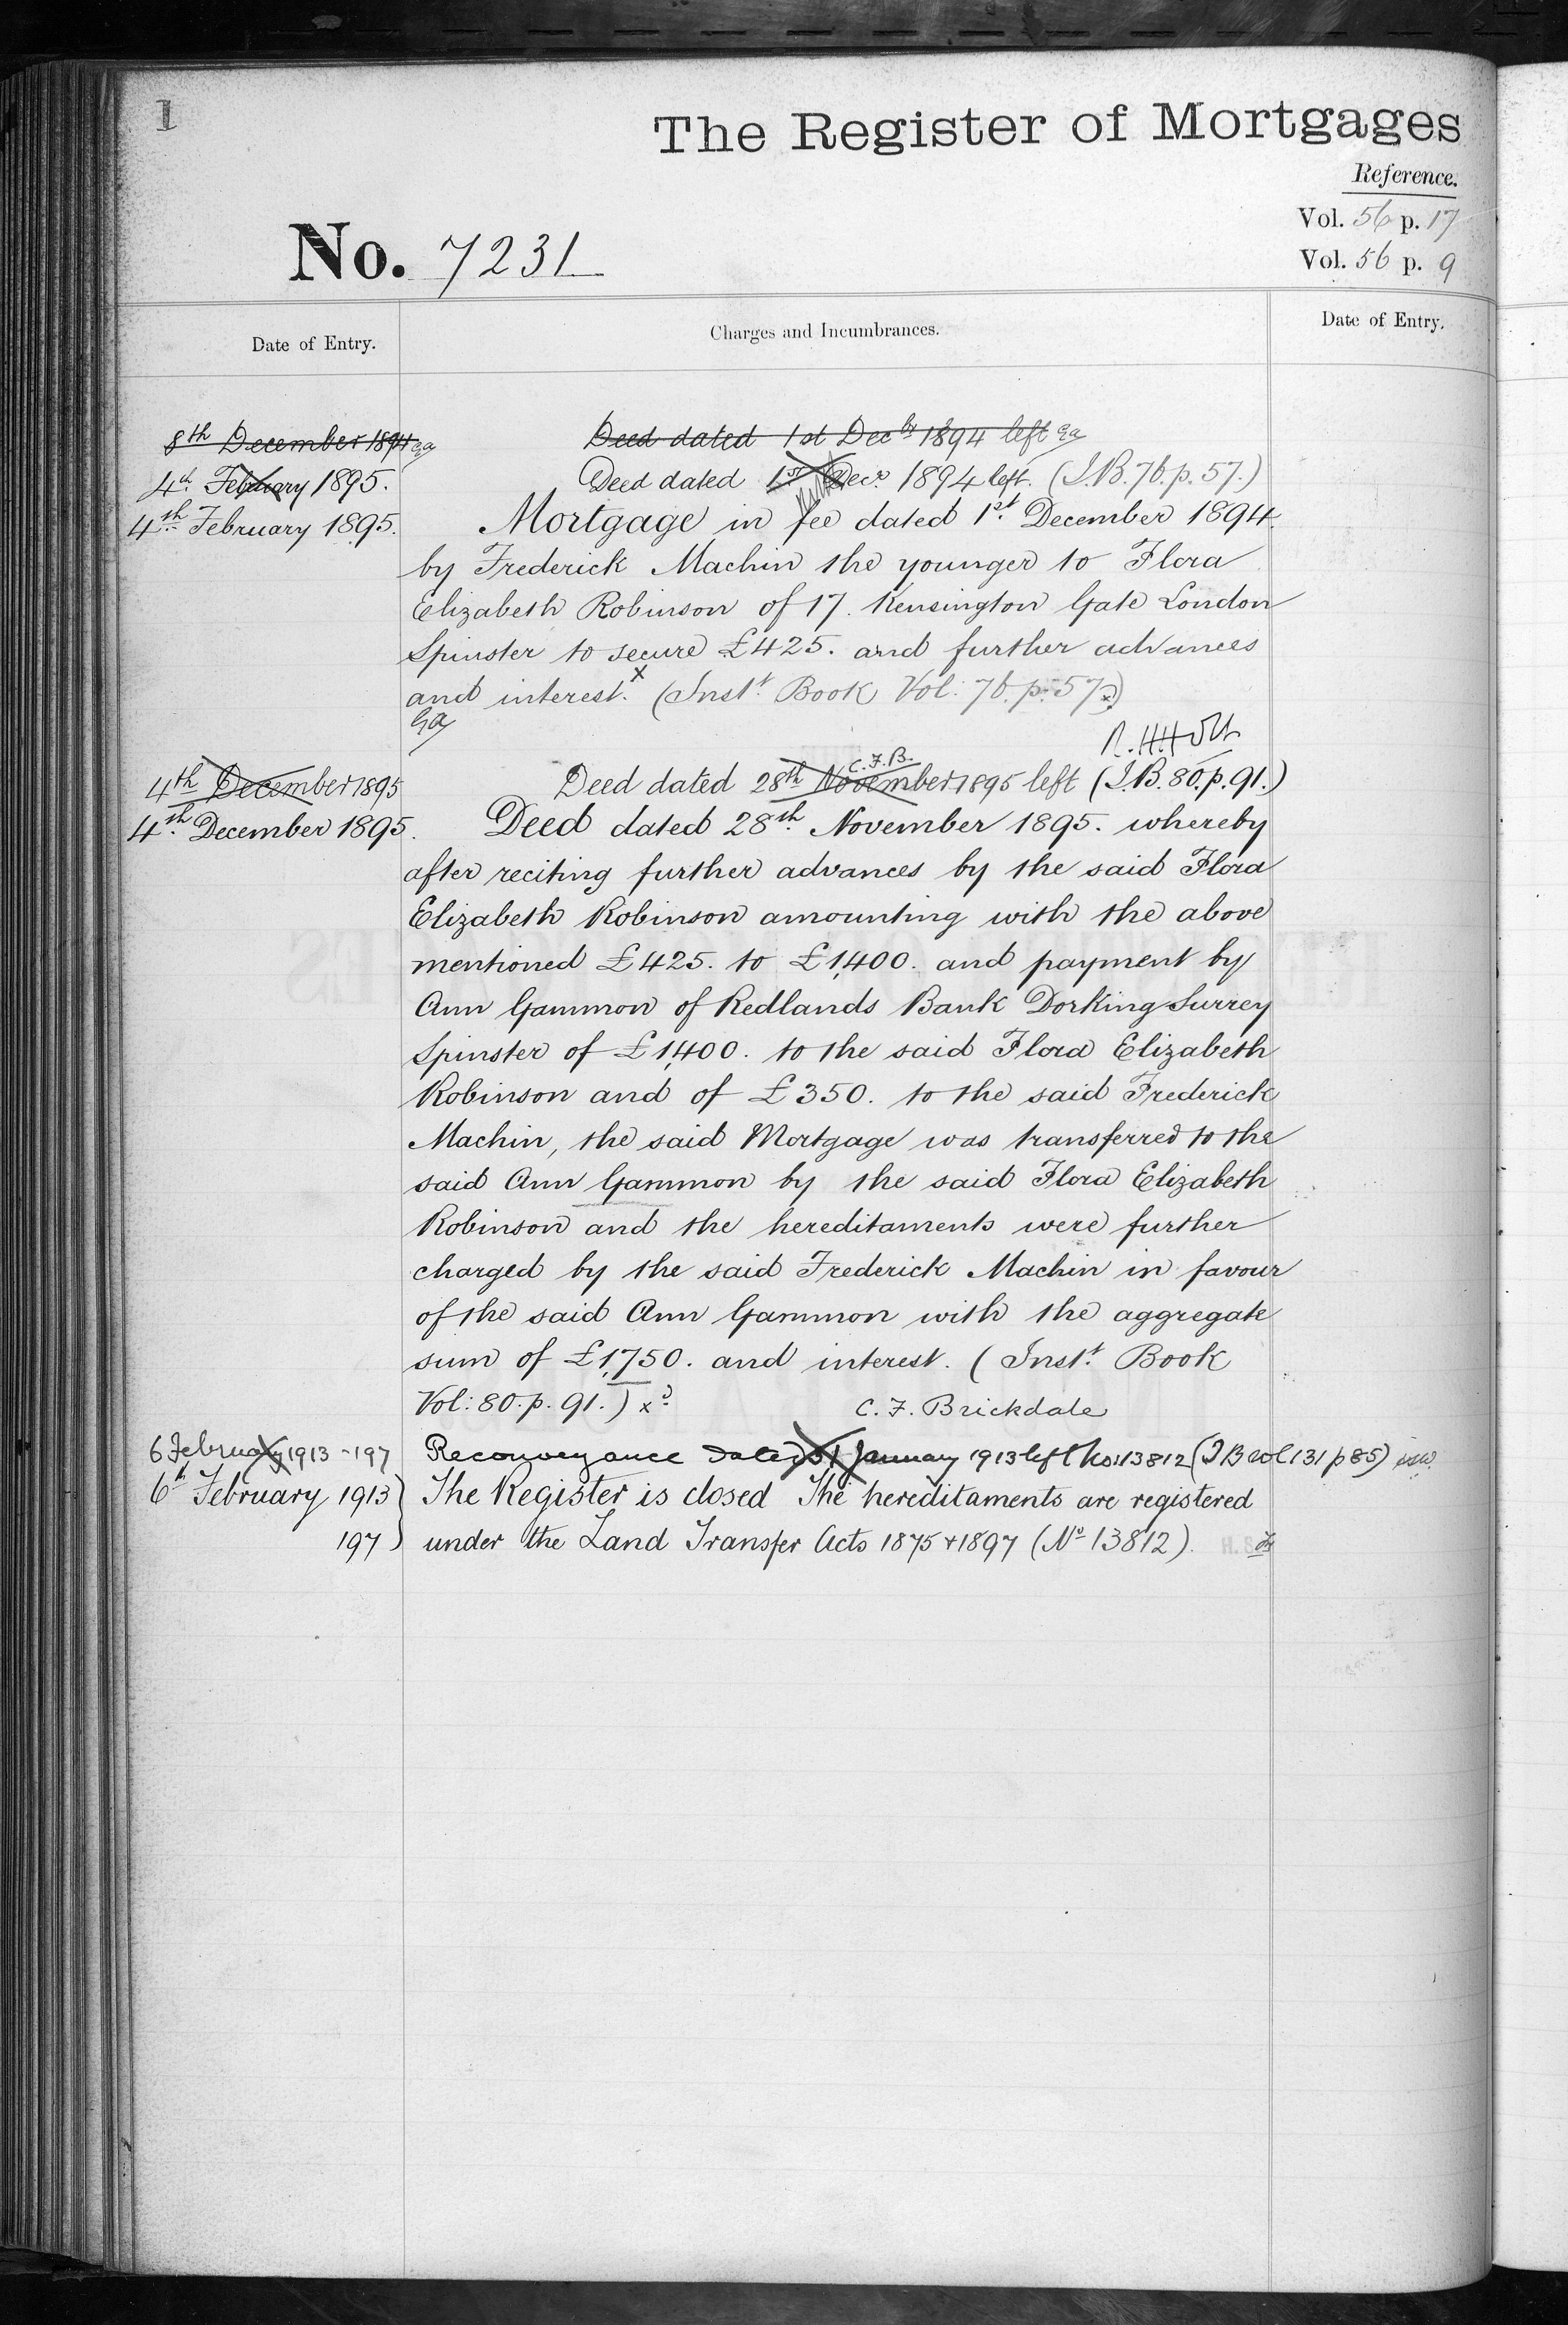 1
The Register of Mortgages
Reference.
Vol. 56 p. 17
Vol. 56 p. 9
No. 7231
Date of Entry.
Charges and Incumbrances.
Date of Entry.
8th December 1894 Ga
Deed dated 1st Decbr 1894 left Ga
4th February 1895.
Deed dated 1st Decr 1894 left. (I.B. 76. p. 57.)
4th February 1895.
Mortgage in fee dated 1st December 1894
by Frederick Machin the younger to Flora
Elizabeth Robinson of 17. Kensington Gate London
Spinster to secure £425. and further advances
and interest. x (Inst. Book Vol: 76. p. 57.)
Ga
C.F.B.
4th December 1895
Deed dated 28th November 1895 left (I.B. 80. p. 91.)
4th December 1895.
Deed dated 28th November 1895. whereby
after reciting further advances by the said Flora
Elizabeth Robinson amounting with the above
mentioned £425. to £1,400. and payment by
Ann Gammon of Redlands Bank Dorking Surrey
Spinster of £1,400. to the said Flora Elizabeth
Robinson and of £350. to the said Frederick
Machin, the said Mortgage was transferred to the
said Ann Gammon by the said Flora Elizabeth
Robinson and the hereditaments were further
charged by the said Frederick Machin in favour
of the said Ann Gammon with the aggregate
sum of £1,750. and interest. (Inst. Book
Vol: 80. p. 91.) x
C. F. Brickdale
6 February 1913 - 197
Reconveyance dated 31 January 1913 left No: 13812 (I B vol 131 p 85)
6th February 1913
The Register is closed The hereditaments are registered
197
under the Land Transfer Acts 1875 & 1897 (No 13812).